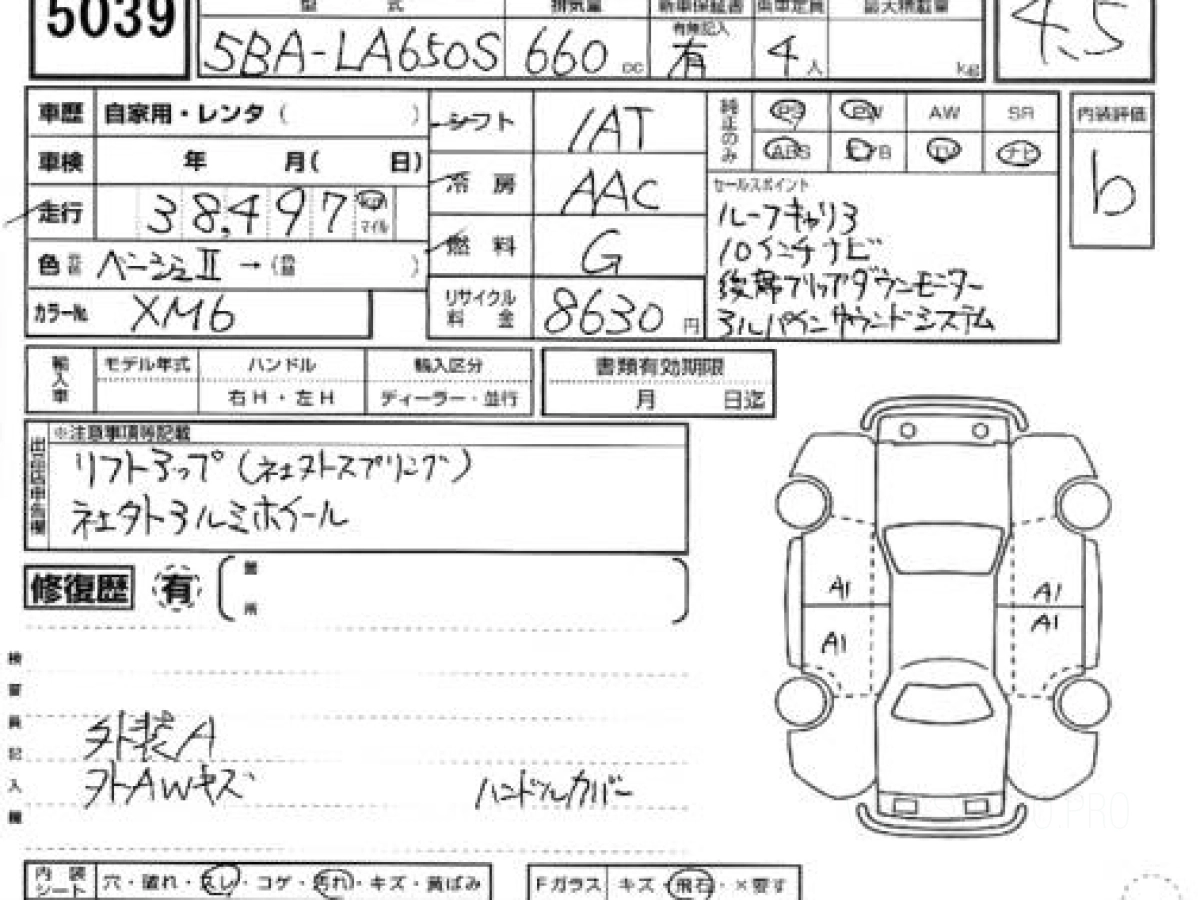 5039
型 式 排気量 新車保証書 乗車定員 最大積載量
5BA-LA650S 660 cc 有無記入 有 4 人 kg
4.5
車歴 自家用・レンタ ( )
シフト IAT
純正のみ PS PW AW SR
ABS TV ナビ
内装評価
b
車検 年 月( 日)
冷房 AAC
セールスポイント
走行 38,497 km マイル
色 ベージュII → ( )
燃料 G
カラーNo. XM6
リサイクル料金 8630 円
10インチナビ
後席フリップダウンモニター
輸入車 モデル年式 ハンドル 輸入区分
右H・左H ディーラー・並行
書類有効期限
月 日迄
出品店申告欄
※注意事項等記載
リフトアップ(社外スプリング)
社外アルミホイール
修復歴 有
箇所
検査員記入欄
外装A
外AWキズ ハンドルカバー
A1 A1
A1 A1
内装シート 穴・破れ・スレ・コゲ・汚れ・キズ・黄ばみ
Fガラス キズ・飛石・×要す